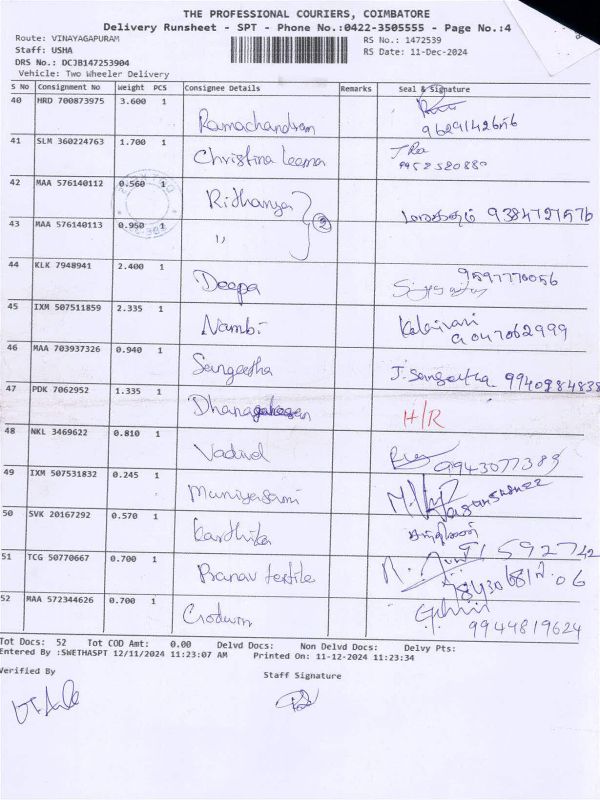 THE PROFESSIONAL COURIERS, COIMBATORE
Delivery Runsheet - SPT - Phone No.:0422-3505555 - Page No.:4
Route: VINAYAGAPURAM RS No.: 1472539
Staff: USHA RS Date: 11-Dec-2024
DRS No.: DCJB147253904
Vehicle: Two Wheeler Delivery
S No Consignment No Weight PCS Consignee Details Remarks Seal & Signature
40 HRD 700873975 3.600 1
Ramachandran 9629142656
41 SLM 360224763 1.700 1
Christina Leema 9952520880
42 MAA 576140112 0.560 1
Rithanya 2 9384721576
43 MAA 576140113 0.950 1
"
44 KLK 7948941 2.400 1
Deepa 9597770056
45 IXM 507511859 2.335 1
Nambi Kalaivani 9047062999
46 MAA 703937326 0.940 1
Sangeetha J. Sangeetha 9940984838
47 PDK 7062952 1.335 1
H/R
48 NKL 3469622 0.810 1
Vadivel 9943077389
49 IXM 507531832 0.245 1
Muniyasami
50 SVK 20167292 0.570 1
Karthika
51 TCG 50770667 0.700 1
Pranav textile
52 MAA 572344626 0.700 1
Crodwin 9944819624
Tot Docs: 52 Tot COD Amt: 0.00 Delvd Docs: Non Delvd Docs: Delvy Pts:
Entered By :SWETHASPT 12/11/2024 11:23:07 AM Printed On: 11-12-2024 11:23:34
Verified By Staff Signature